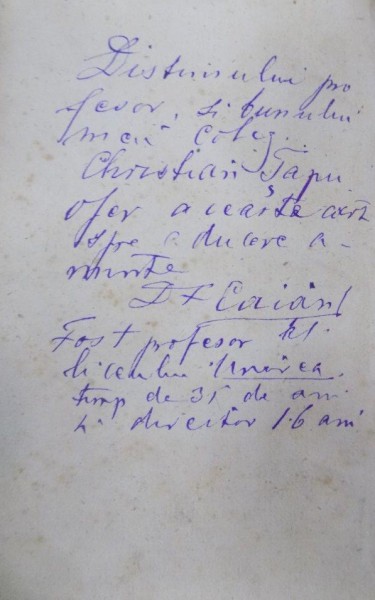 Distinsului pro
fesor, si bunului
meu coleg.
Christian Țapu
ofer aceaste carte
spre aducere a-
minte
D F Caian
Fost profesor la
liceului Unirea
timp de 35 de ani
si director 16 ani